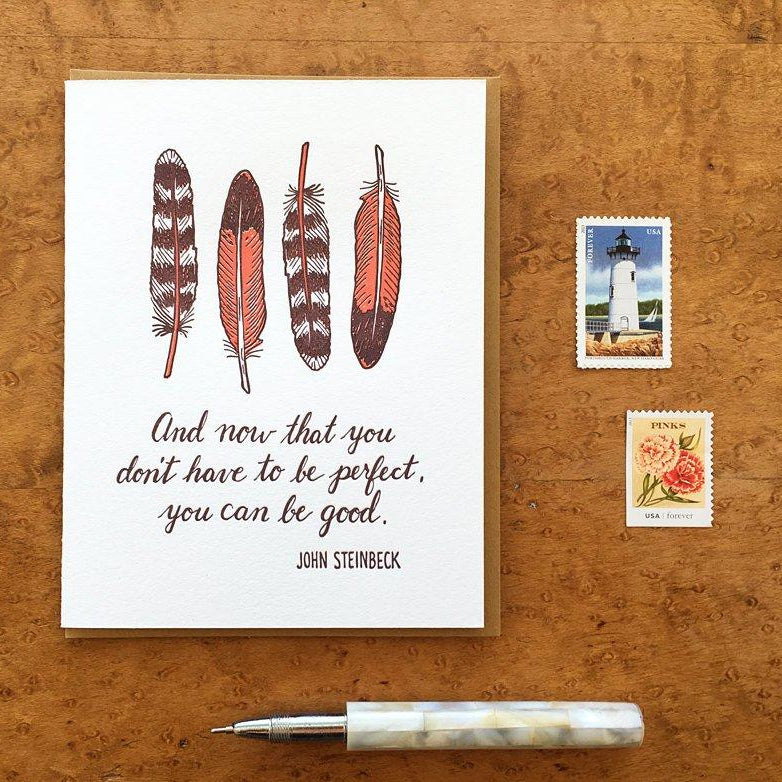 And now that you
don't have to be perfect,
you can be good.
JOHN STEINBECK
FOREVER
USA
PINKS
USA | forever